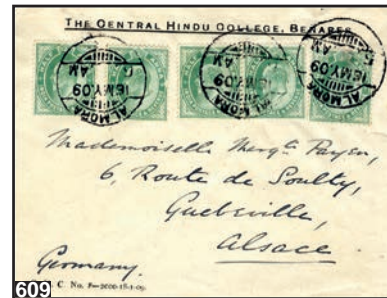 THE CENTRAL HINDU COLLEGE, BENARES
ALMORA
16 MY.09
AM
ALMORA
16 MY.09
AM
ALMORA
16 MY.09
AM
Mademoiselle Payen,
6, Route de Soultz,
Guebeville,
Alsace
Germany.
C. No. 8—2000-18-1-09.
609